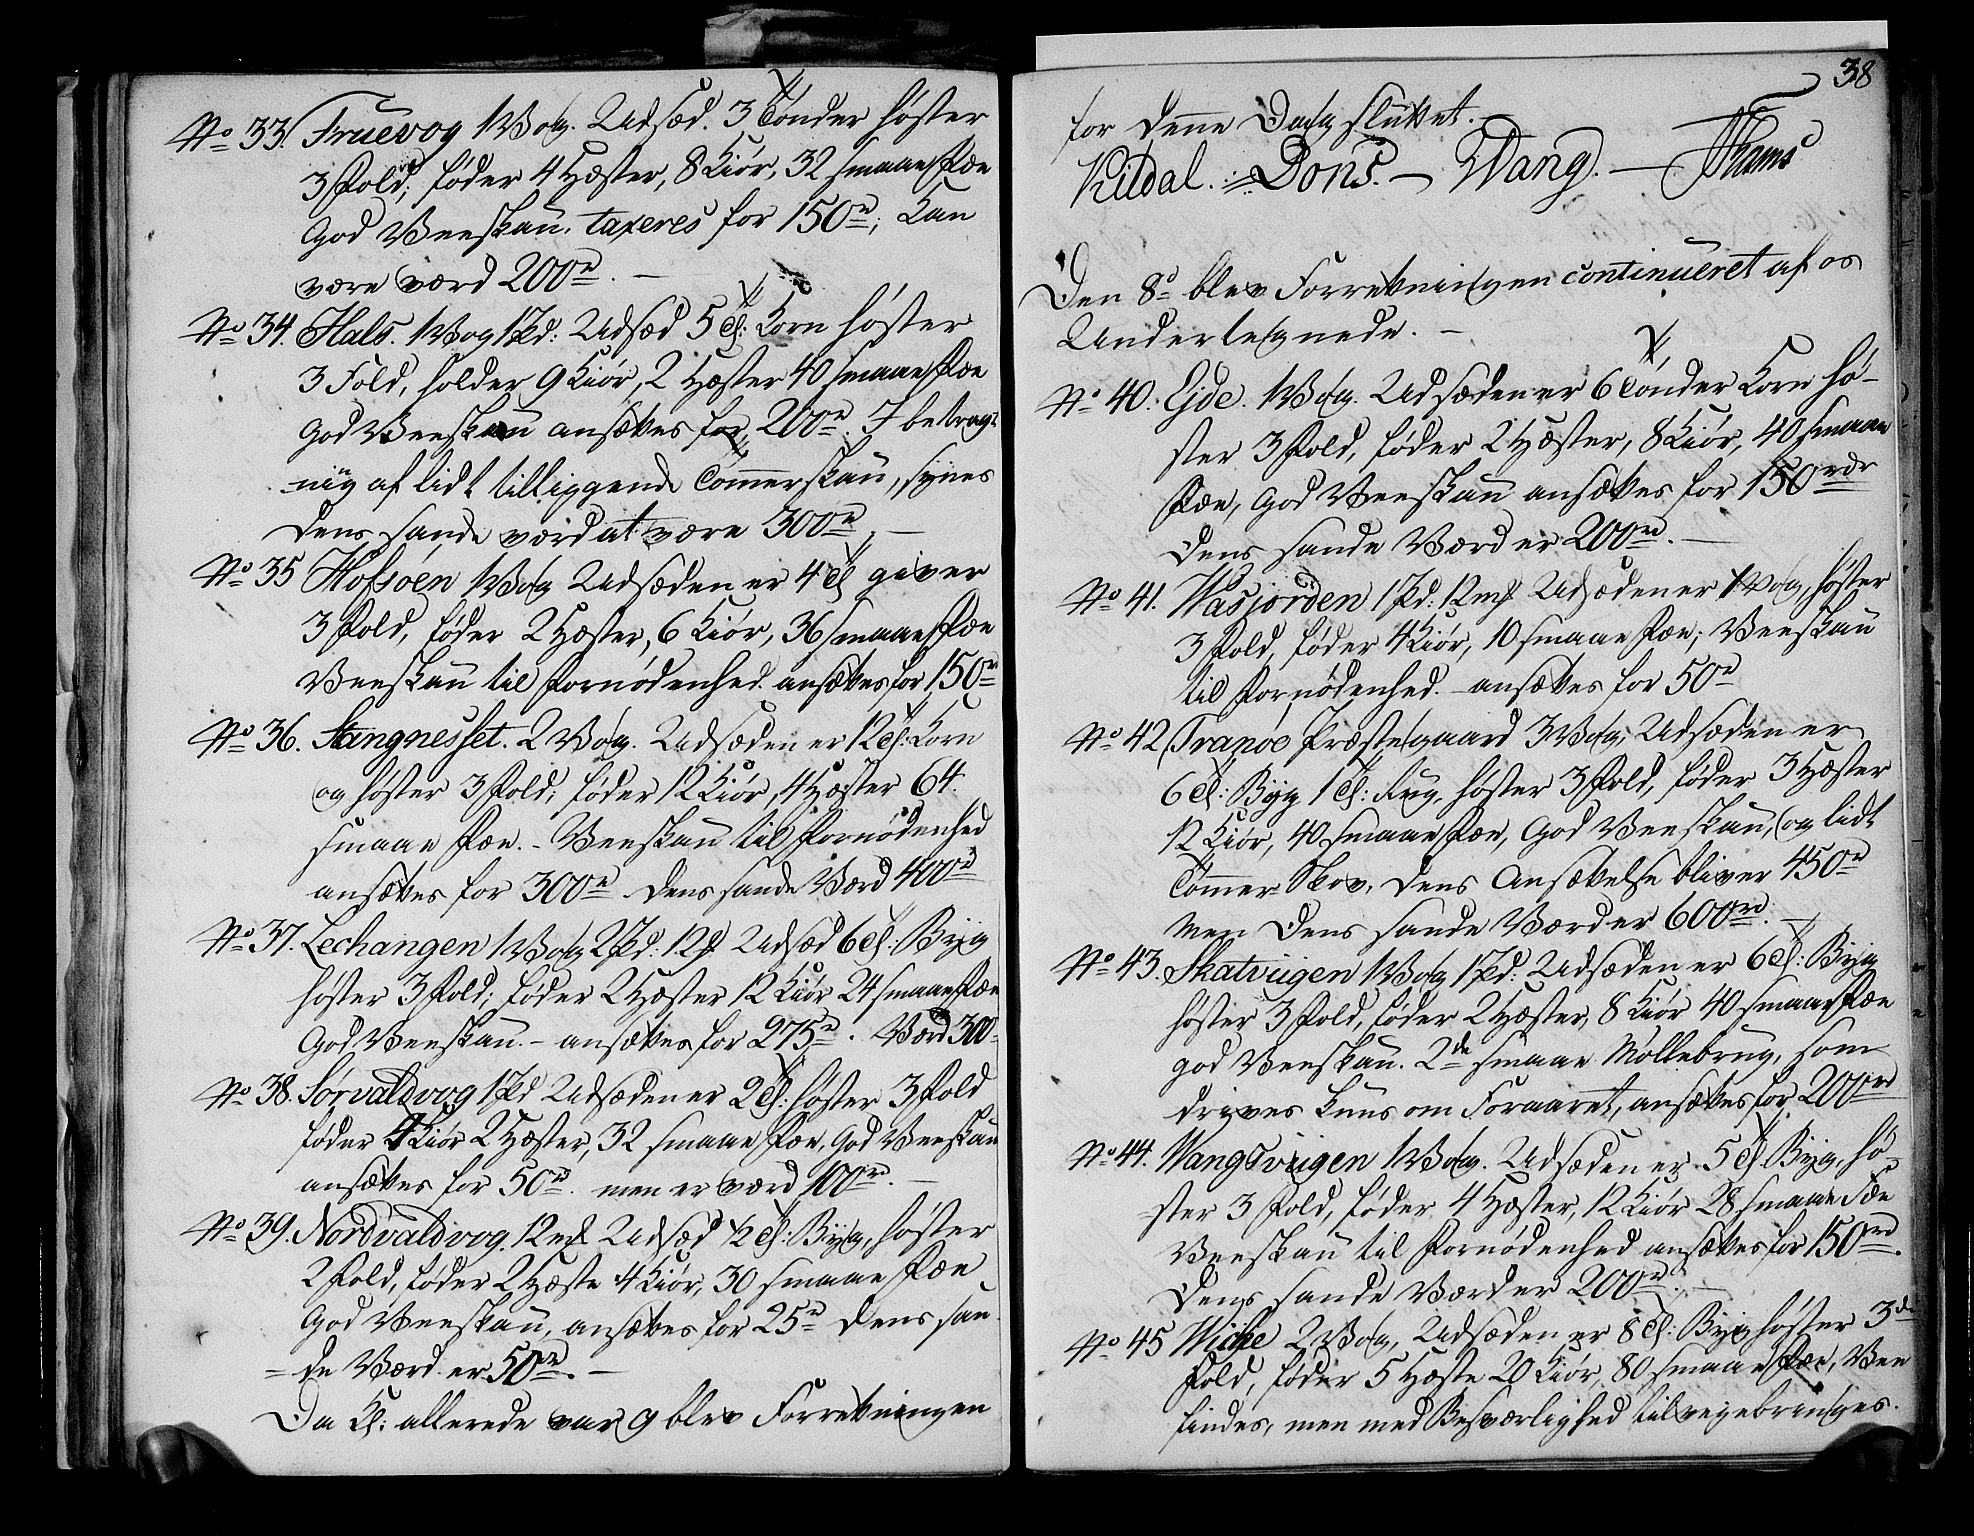 No 33. Truevog 1 Vog. Udsæd. 3 Tønder høster
3 Fold, føder 4 Hæster, 8 Kiór, 32 smaae Fæe
God Veeskau. taxeres for 150rd; Kan
være værd 200rd. —
No 34. Hals. 1 Vog 1 Pd: Udsæd 5 Td: Korn høster
3 Fold, holder 9 Kiór, 2 Hæster 40 smaae Fæe
God Veeskau ansættes for 200rd. I betragt-
ning af lidt tilliggende Tømmerskau, synes
dens sande værd at være 300rd. —
No 35 Hofsøen 1 Vog Udsæden er 4 Td giver
3 Fold, føder 2 Hæster, 6 Kiór, 36 smaae Fæe
Veeskau til Fornødenhed. ansættes for 150rd
No 36. Stangnesset. 2 Vog. Udsæden er 12 Td: Korn
og høster 3 Fold; føder 12 Kiór, 4 Hæster 64.
smaae Fæe. - Veeskau til Fornødenhed
ansættes for 300rd. dens sande Værd 400rd
No 37. Lechangen 1 Vog 2 Pd: 12 # Udsæd 6 Td: Byg
høster 3 Fold; føder 2 Hæster 12 Kiór 24 smaae Fæe
God Veeskau. - ansættes for 275rd. Værd 300
No 38. Sørvaldvog 1 Pd Udsæden er 2 Td: høster 3 Fold
føder 4 Kiór 2 Hæster, 32 smaae Fæe, God Veeskau
ansættes for 50rd. men er værd 100rd. —
No 39. Nordvaldvog. 12 m# Udsæd 1/2 Td: Byg, høster
2 Fold, føder 2 Hæste 4 Kiór, 30 smaae Fæe
God Veeskau, ansættes for 25rd dens san-
= de Værd er 50rd. —
Da Kl: allerede var 9 blev Forretningen
38
for denne Dag sluttet.
Kildal. Dons. — Wang. — Thams
Den 8de blev Forretningen continueret af os
Underteg̃nede. —
No 40. Ejde. 1 Vog. Udsæden er 6 Tønder Korn hø-
ster 3 Fold, føder 2 Hæster, 8 Kiór, 40 smaae
Fæe, God Veeskau ansættes for 150rdr
dens sande Værd er 200rd. —
No 41. Wasjorden 1 Pd: 12 m# Udsæden er 1 Vog, høster
3 Fold, føder 4 Kiór, 10 smaae Fæe; Veeskau
til Fornødenhed. - ansættes for 50rd
No 42. Tranøe Præstegaard 3 Vog; Udsæden er
6 Td: Byg 1 Td: Rug, høster 3 Fold, føder 3 Hæster
12 Kiór, 40 smaae Fæe, God Veeskau, og lidt
Tømmer Skov, dens Ansættelse bliver 450rd
Men dens sande Værd er 600rd. —
No 43. Skatviigen 1 Vog 1 Pd: Udsæden er 6 Td: Byg
høster 3 Fold, føder 2 Hæster, 8 Kiór 40 smaae Fæe
god Veeskau. 2de smaae Møllebrug, som
drives kuns om Foraaret, ansættes for 200rd
No 44. Wangsviigen 1 Vog. Udsæden er 5 Td. Byg, hø-
ster 3 Fold, føder 4 Hæster, 12 Kiór 28 smaae Fæe
Veeskau til Fornødenhed ansættes for 150rd.
dens sande Værd er 200rd. —
No 45 Wiche 2 Vog, Udsæden er 8 Td: Byg høster 3de
Fold, føder 5 Hæste 20 Kiór, 80 smaae Fæe, Vee
findes, men med Besværlighed tilvejebringes.